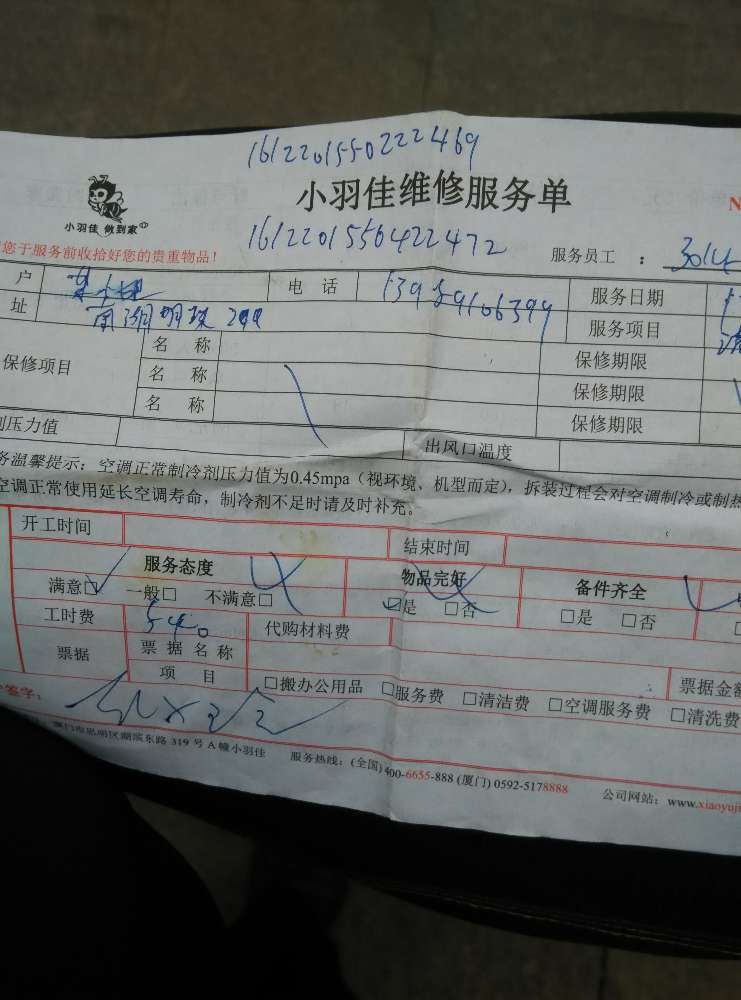 1612201550222469
小羽佳维修服务单
N
小羽佳 做到家
1612201550422472
您于服务前收拾好您的贵重物品！
服务员工 ： 3014
户 电 话 服务日期
址 南湖明珠 服务项目
名 称 保修期限
保修项目 名 称 保修期限
名 称 保修期限
压力值 出风口温度
务温馨提示：空调正常制冷剂压力值为0.45mpa（视环境、机型而定），拆装过程会对空调制冷或制热
空调正常使用延长空调寿命，制冷剂不足时请及时补充。
开工时间 结束时间
服务态度 物品完好 备件齐全
满意□ 一般□ 不满意□ □是 □否 □是 □否
工时费 540 代购材料费
票据 票 据 名 称 票据金额
项 目 □搬办公用品 □服务费 □清洁费 □空调服务费 □清洗费
签字：
厦门市思明区湖滨东路 319 号 A 幢小羽佳 服务热线：(全国) 400-6655-888 (厦门) 0592-5178888 公司网站：www.xiaoyuji